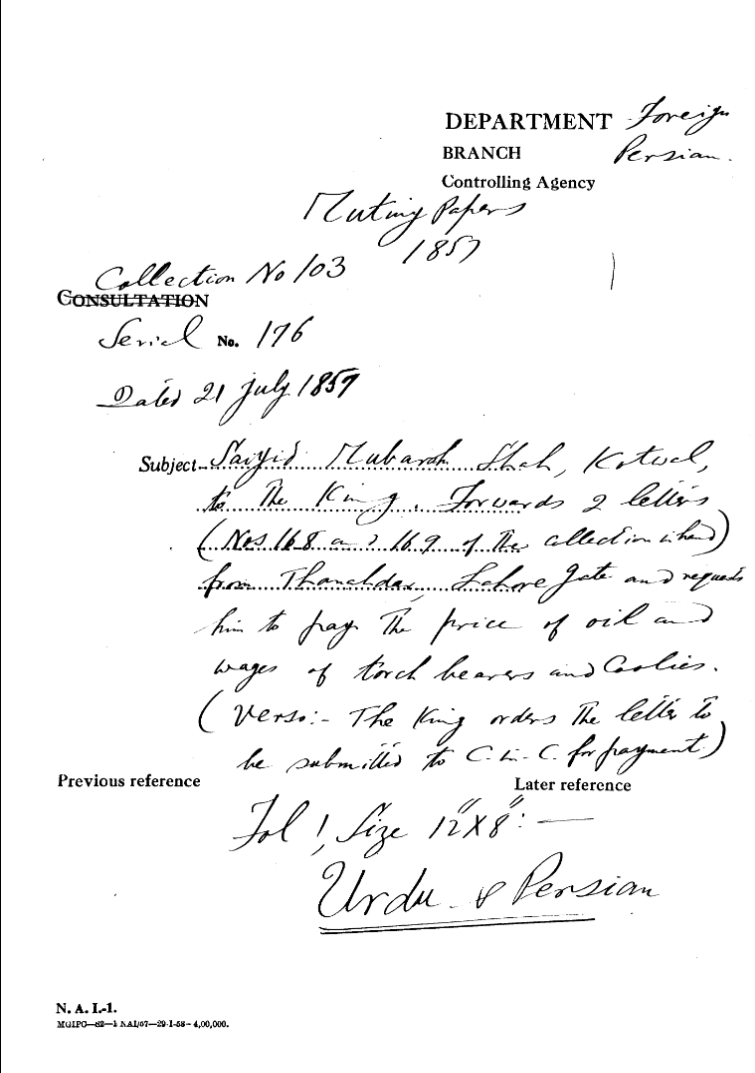 DEPARTMENT Foreign
BRANCH Persian.
Controlling Agency
Mutiny Papers
1857
Collection No 103
CONSULTATION
Serial No. 176
Dated 21 July 1857
Subject Saiyid Mubarak Shah, Kotwal,
to the King. Forwards 2 letters
(Nos 168 and 169 of the collection in hand)
from Thanahdar, Lahore Gate and requests
him to pay the price of oil and
wages of torch bearers and Coolies.
(Verso:- The King orders the letter to
be submitted to C-in-C. for payment.)
Previous reference
Later reference
Fol 1, Size 12"X8":—
Urdu & Persian
N. A. I.-1.
MGIPC—82—1 NAI/57—29-1-58—4,00,000.